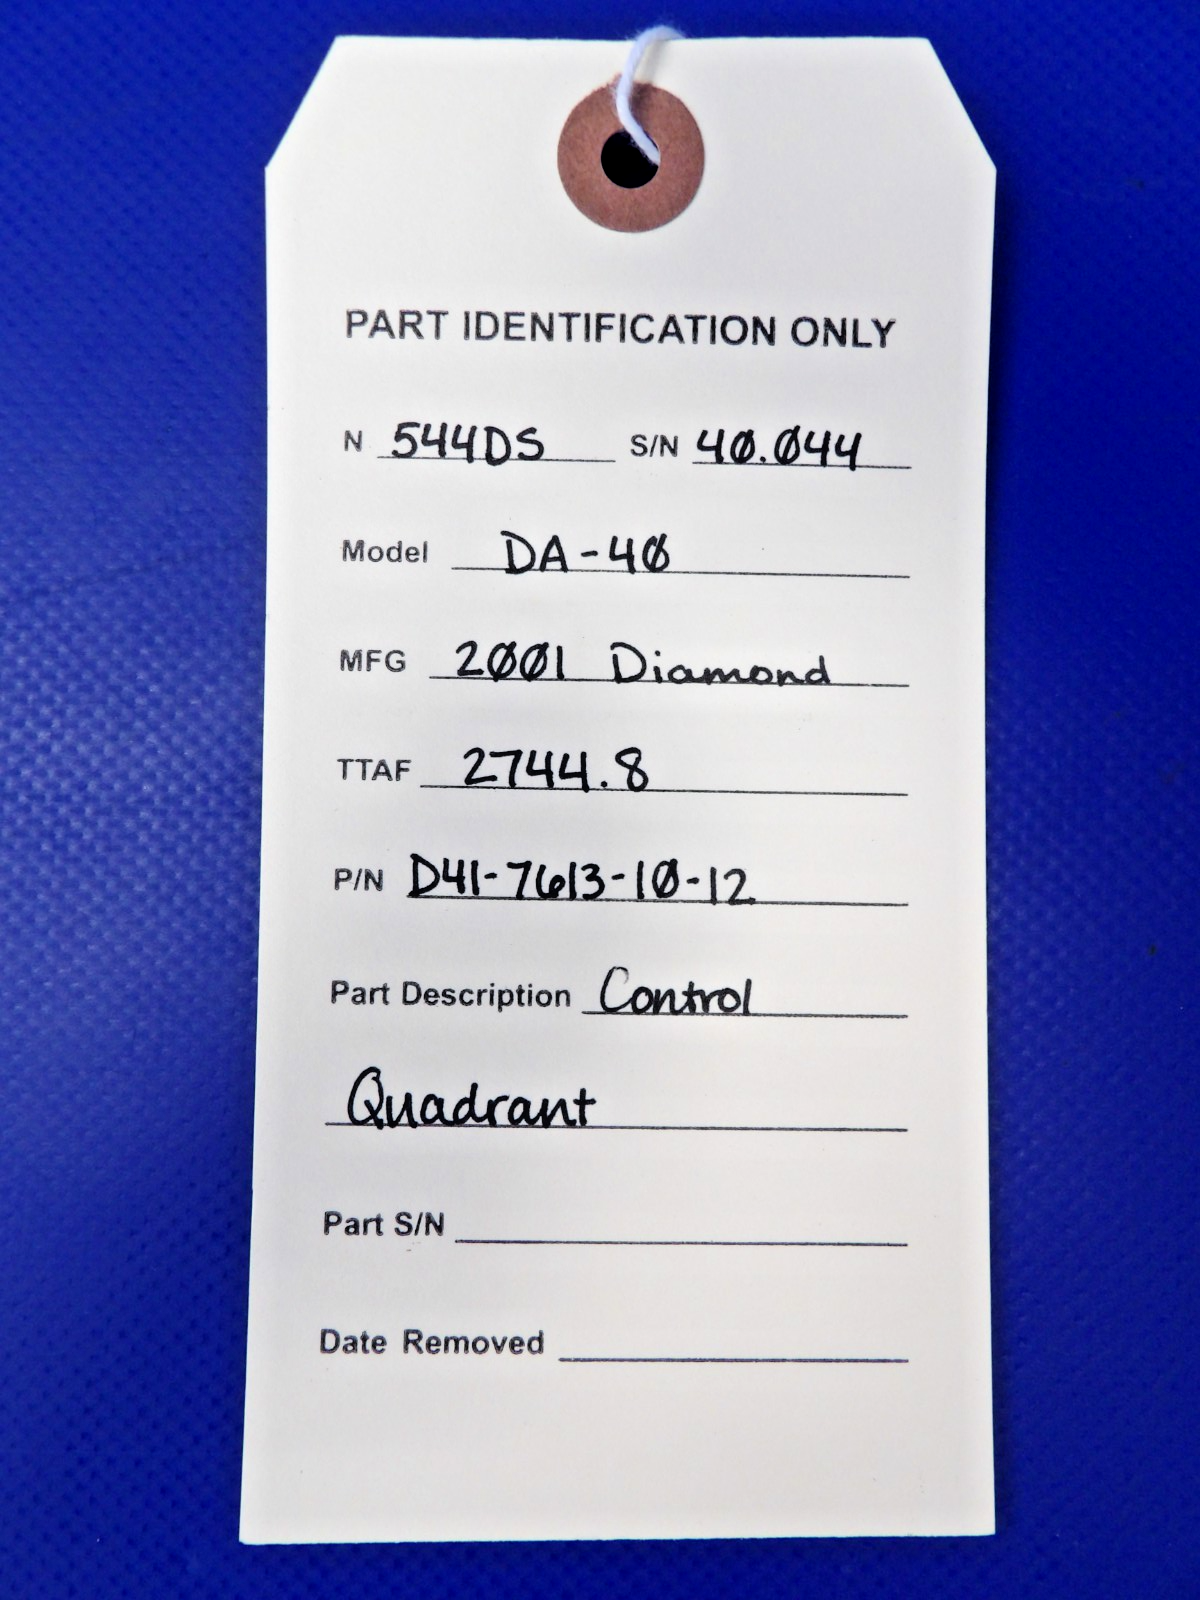 PART IDENTIFICATION ONLY
N 544DS S/N 40.044
Model DA-40
MFG 2001 Diamond
TTAF 2744.8
P/N D41-7613-10-12
Part Description Control
Quadrant
Part S/N
Date Removed